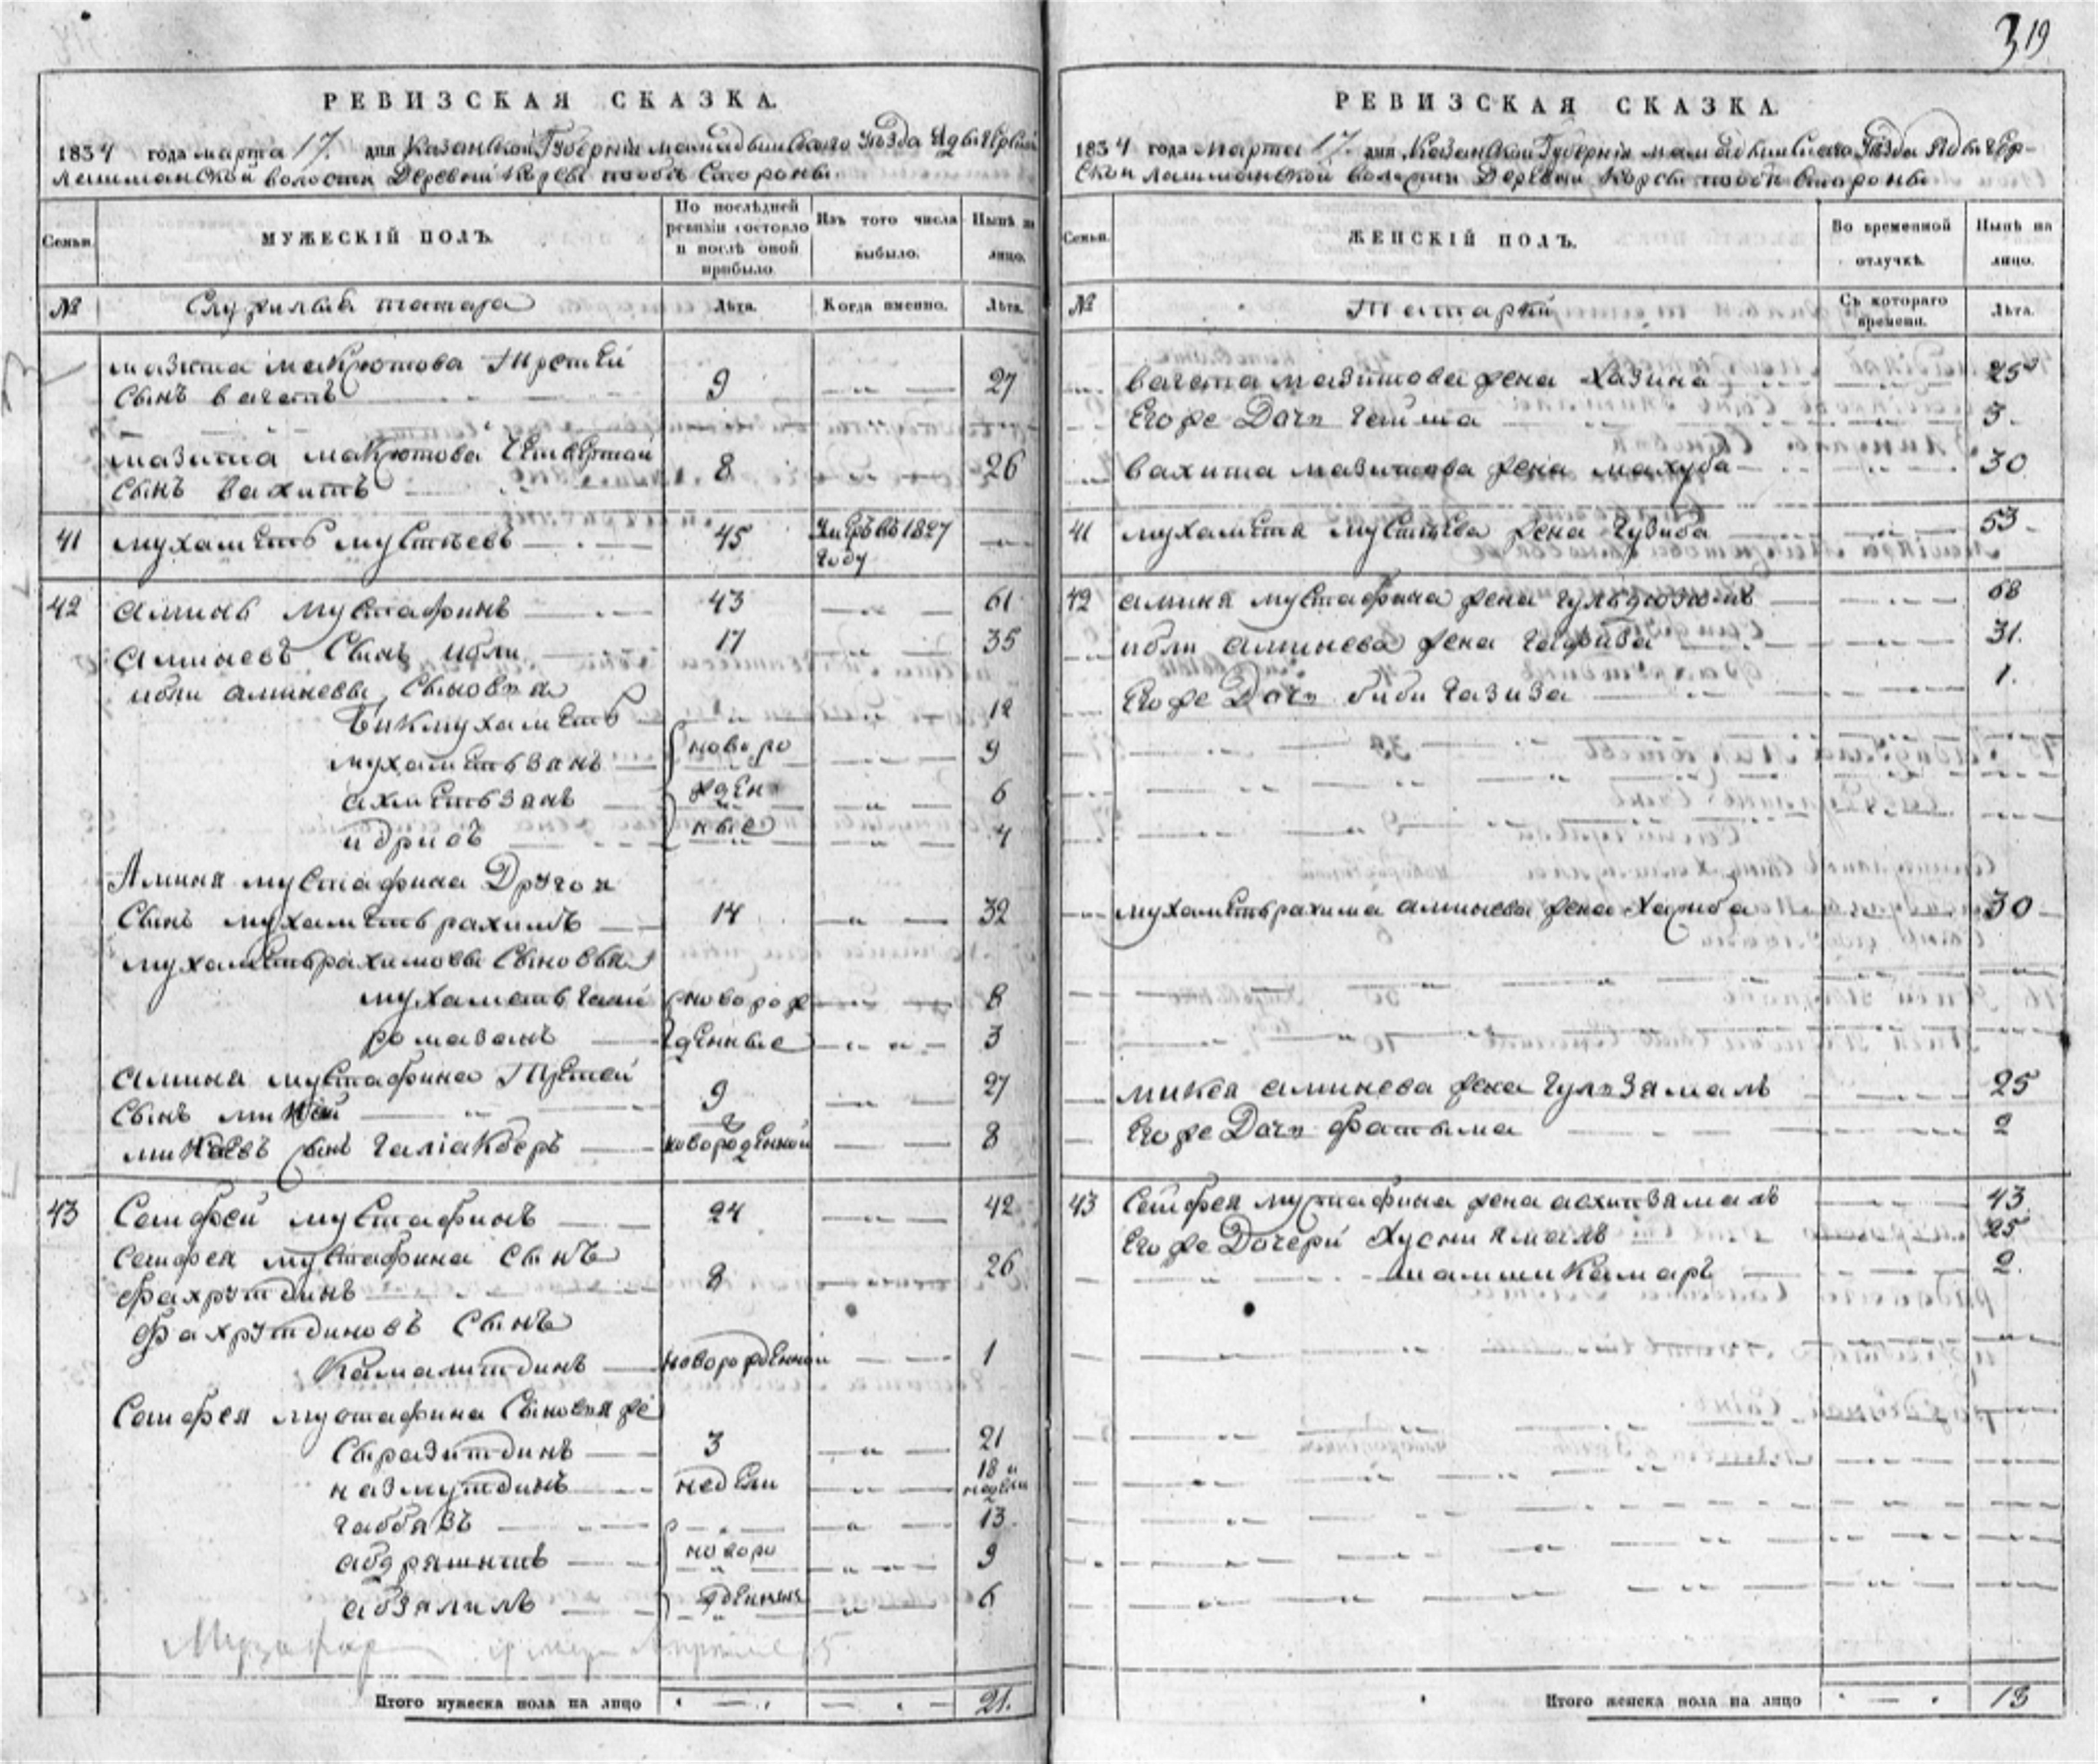 319
РЕВИЗСКАЯ СКАЗКА.
1834 года марта 17. дня Казанской Губерніи мамадышскаго Уѣзда
лашманской волости Деревни Корсы стороны
Семьи.
МУЖЕСКІЙ ПОЛЪ.
По послѣдней ревизіи состояло и послѣ оной прибыло
Изъ того числа выбыло.
Нынѣ на лицо.
№
Служилыя татара
Лѣта.
Когда именно.
Лѣта.
мазита макѳютова Третей
сынъ вагапъ 9 — „ — 27
мазита макѳютова Четвертой
сынъ вахитъ 8 — „ — 26
41 мухаметь мустѣевъ 45 Умеръ въ 1827 году — „ —
42 аминь мустафинъ 43 — „ — 61
аминевъ сынъ ибли 17 — „ — 35
ибли аминевы сыновья
бикмухаметь 12
мухаметьзанъ новоро — „ — 9
ахметьзянъ жден — „ — 6
идрисъ ные — „ — 4
Аминя мустафина Другой
сынъ мухаметьрахимъ 14 — „ — 32
мухаметьрахимовы сыновья
мухаметьгали новорож — „ — 8
ромазанъ денные — „ — 3
амина мустафина Третей
сынъ микей 9 — „ — 27
микаевъ сынъ галіакберъ новорожденной 8
43 Сейфей мустафинъ 24 — „ — 42
сейфея мустафина сынъ
фахрутдинъ 8 26
фахрутдиновъ сынъ
Камалитдинъ новорожденной — — 1
Сейфея мустафина сыновья же
сыразитдинъ 3 — „ — 21
назмутдинъ недели — „ — 18 и недели
габбязъ — „ — 13
абдряшитъ новоро — „ — 9
абзялилъ жденныя — „ — 6
Итого мужеска пола на лицо 21.
РЕВИЗСКАЯ СКАЗКА.
1834 года марта 17. дня Казанской Губерніи мамадышскаго Уѣзда
ской лашманской волости Деревни Корсы стороны
Семьи.
ЖЕНСКІЙ ПОЛЪ.
Во временной отлучкѣ.
Нынѣ на лицо.
№
Татарки
Съ котораго времени.
Лѣта.
вагапа мазитова жена Хазина 25
Его же Дочь 3
вахита мазитова жена махуба 30
41 мухаметя мустѣева жена 53
42 аминя мустафина жена 68
ибли аминева жена гафифа 31.
Его же Дочь биби газиза 1.
мухаметьрахима аминева жена Хабиба 30
микея аминева жена гульзямаль 25
Его же Дочь фатыма 2
43 Сейфея мустафина жена 43
Его же Дочери Хуснизямаль 25
шамшикамаръ 2.
Итого женска пола на лицо 13